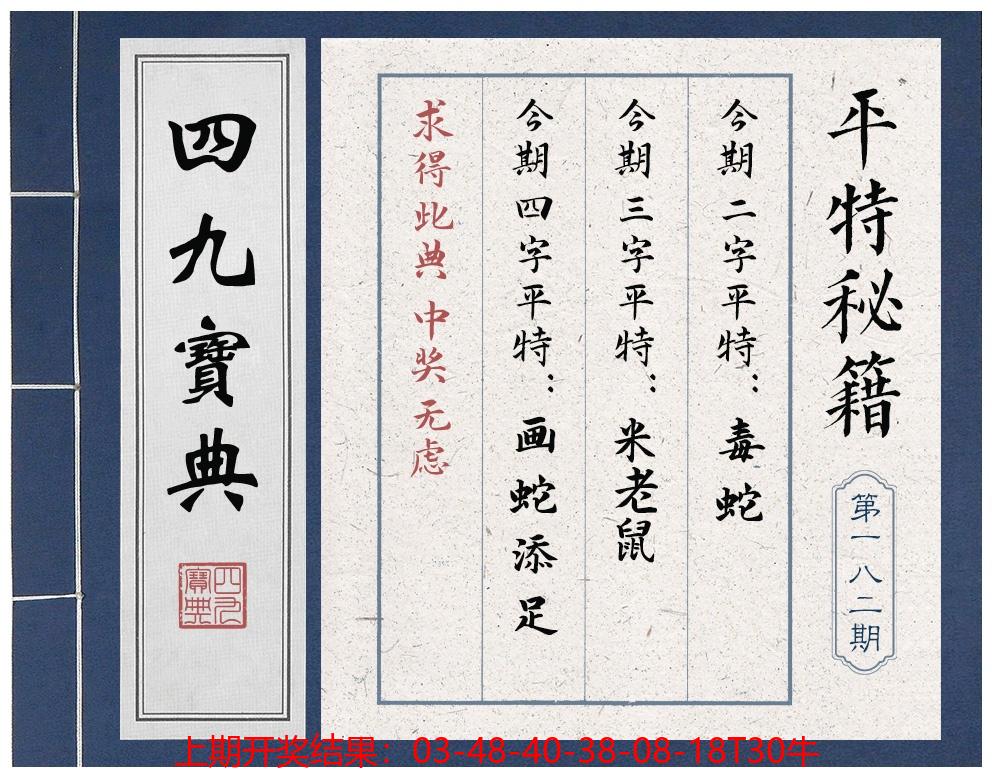 平特秘籍
第一八二期
今期二字平特：毒蛇
今期三字平特：米老鼠
今期四字平特：画蛇添足
求得此典 中奖无虑
四九寶典
四九寶典
上期开奖结果：03-48-40-38-08-18T30牛